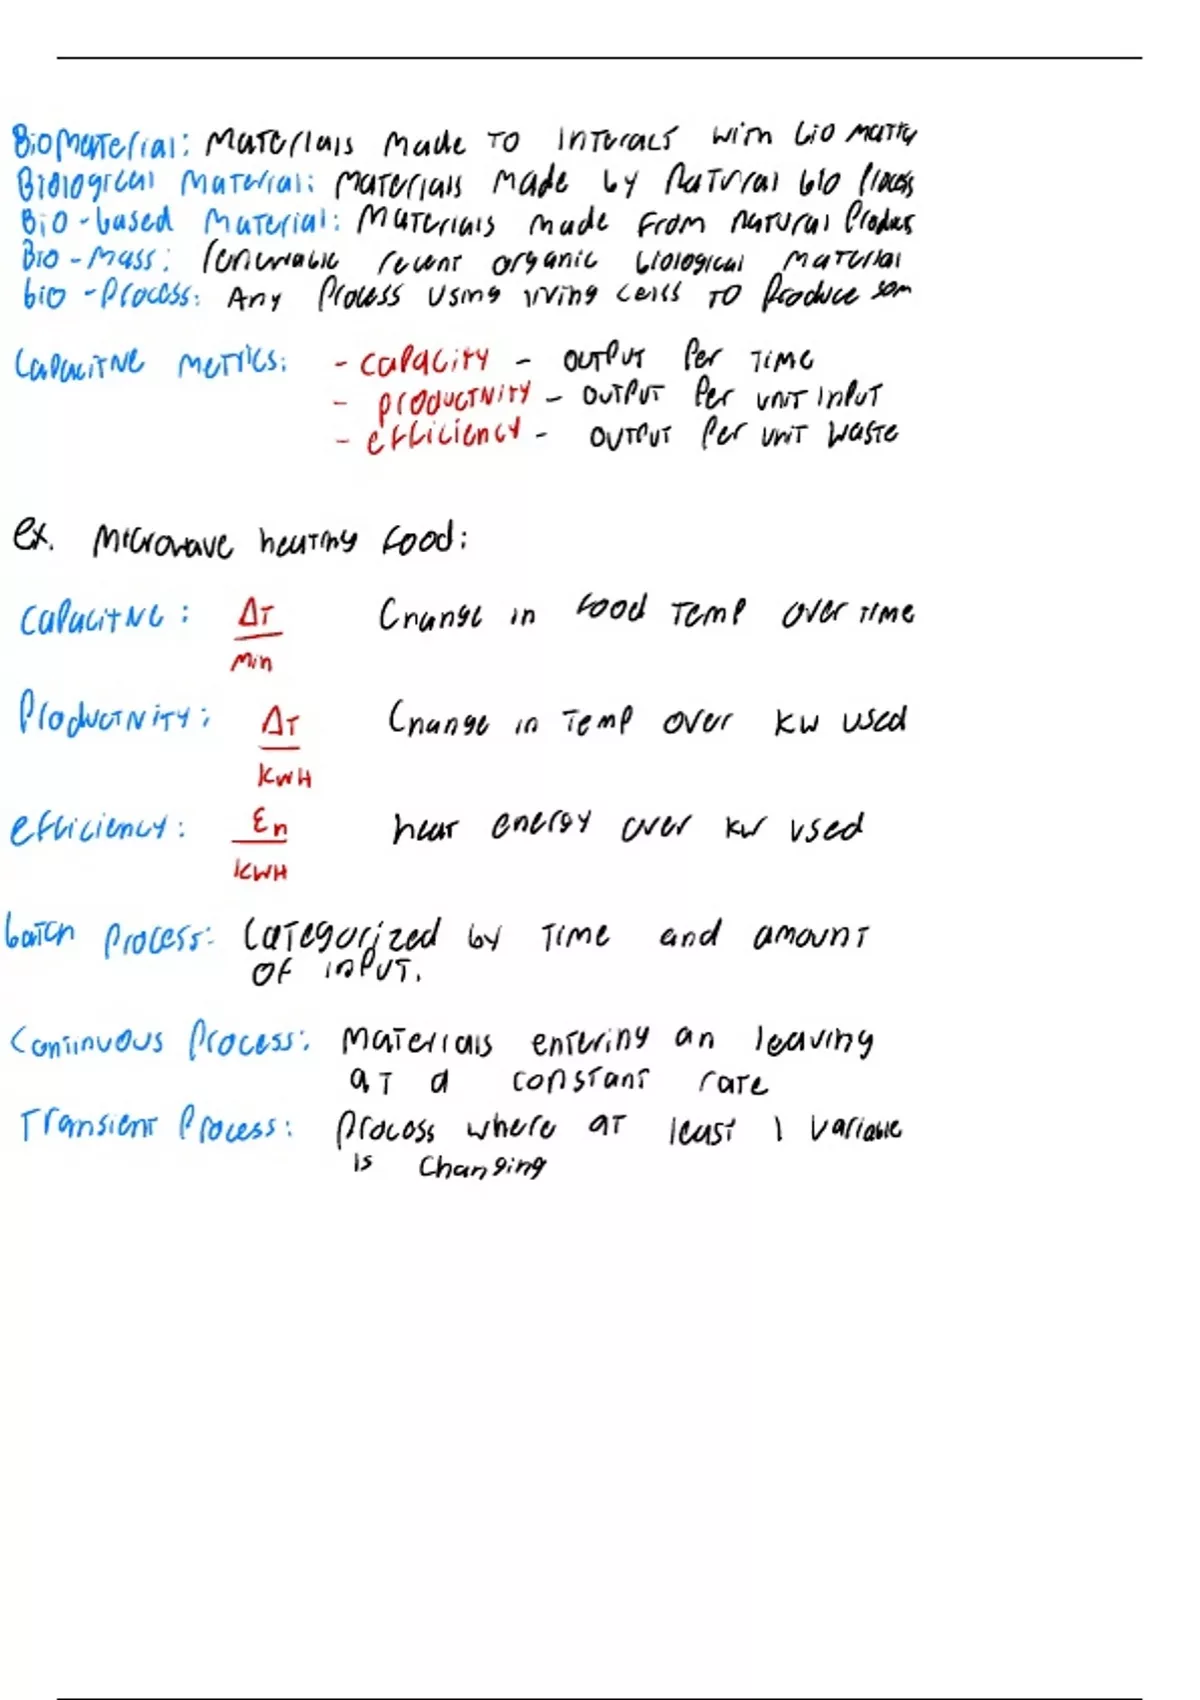 BioMaterial: Materials made to interact with bio matter
Biological Material: Materials made by natural bio process
Bio-based Material: Materials made from natural Produc
Bio-Mass: renewable recent organic biological material
bio-Process: Any Process using living cells to Produce som
Capacitive Metrics: - capacity - output Per Time
- productivity - output Per unit input
- efficiency - output Per unit waste
ex. Microwave heating food:
Capacitive: ΔT/min Change in food Temp over time
Productivity: ΔT/KWH Change in Temp over KW used
efficiency: En/KWH heat energy over kw used
batch Process: Categorized by Time and amount
of input.
Continuous Process: Materials entering an leaving
at a constant rate
Transient Process: Process where at least 1 variable
is changing